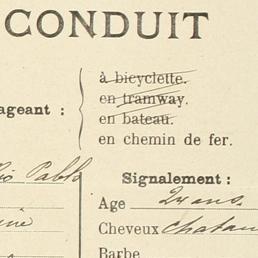 CONDUIT
à bicyclette.
en tramway.
ageant :
en bateau.
en chemin de fer.
Pablo
Signalement :
Age 24 ans.
Cheveux chatain
Barbe